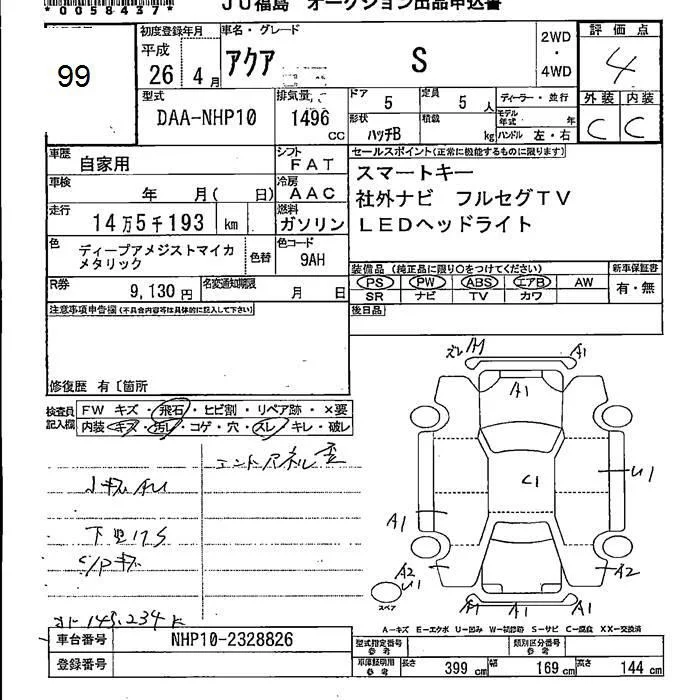 *0058437*
JU福島 オークション出品申込書
99
初度登録年月
平成
26 4月
車名・グレード
アクア S
2WD
・
4WD
評価点
4
外装 内装
C C
型式
DAA-NHP10
排気量
1496
cc
ドア
5
定員
5人
形状
ハッチB
積載
kg
ディーラー・並行
モデル年式 年
ハンドル 左・右
車歴
自家用
シフト
FAT
車検
年 月( 日)
冷房
AAC
走行
14万5千193 km
燃料
ガソリン
色
ディープアメジストマイカ
メタリック
色替
色コード
9AH
R券
9,130円
名変通知期限
月 日
セールスポイント(正常に機能するものに限ります)
スマートキー
社外ナビ フルセグTV
LEDヘッドライト
装備品(純正品に限り○をつけてください)
PS PW ABS エアB AW
SR ナビ TV カワ
新車保証書
有・無
後日品
注意事項申告欄(不具合内容等は具体的に記入して下さい)
修復歴 有〔箇所
検査員
記入欄
FW キズ・飛石・ヒビ割・リペア跡・×要
内装・キズ・汚レ・コゲ・穴・スレ・キレ・破レ
エンドパネル歪
下廻りS
145,234k
ズレ A1 A1
A1
C1
U1
A1
A2
U1
A2
A1 A1
スペア
A-キズ E-エクボ U-凹み W-補修跡 S-サビ C-腐食 XX-交換済
車台番号
NHP10-2328826
登録番号
型式指定番号
参考
類別区分番号
参考
車庫証明用
参考
長さ 399cm 幅 169cm 高さ 144cm